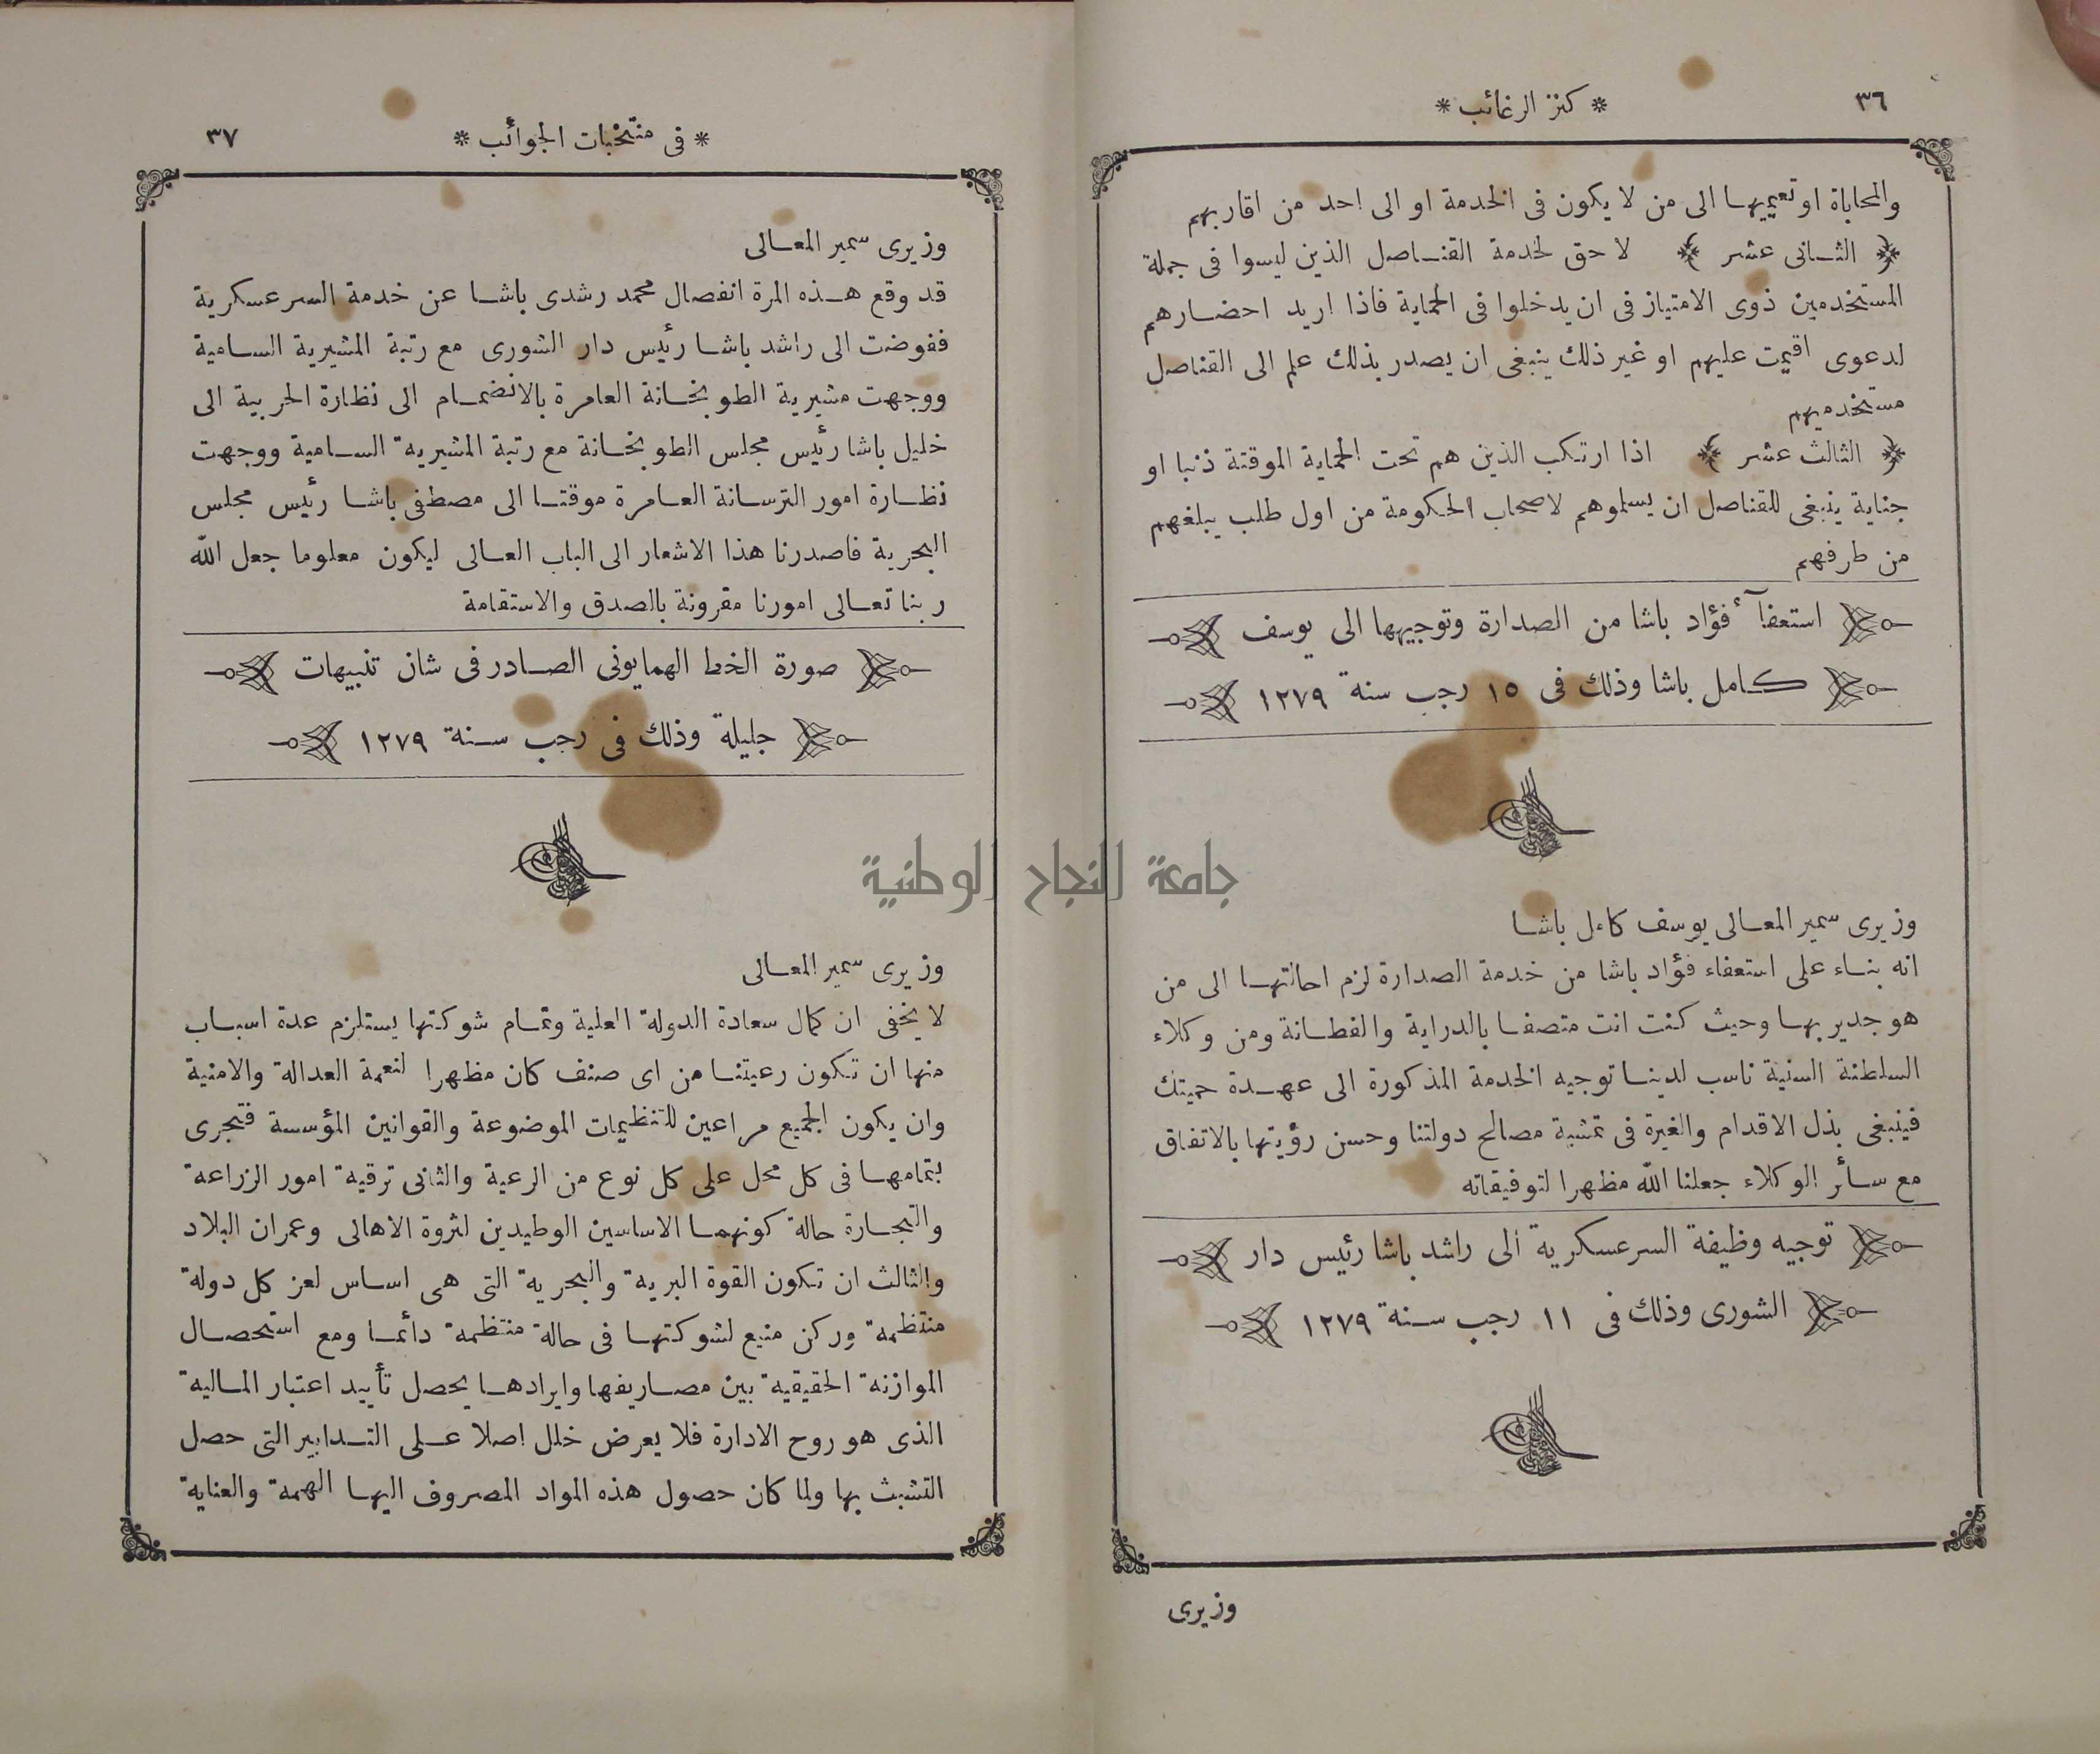 ٣٦
* كنز الرغائب *
والمحاباة او تعميمها الى من لا يكون فى الخدمة او الى احد من اقاربهم
﴿ الثانى عشر ﴾ لا حق لخدمة القناصل الذين ليسوا فى جملة
المستخدمين ذوى الامتياز فى ان يدخلوا فى الحماية فاذا اريد احضارهم
لدعوى اقيمت عليهم او غير ذلك ينبغى ان يصدر بذلك علم الى القناصل
مستخدميهم
﴿ الثالث عشر ﴾ اذا ارتكب الذين هم تحت الحماية الموقتة ذنبا او
جناية ينبغى للقناصل ان يسلموهم لاصحاب الحكومة من اول طلب يبلغهم
من طرفهم
استعفآء فؤاد باشا من الصدارة وتوجيهها الى يوسف
كامل باشا وذلك فى ١٥ رجب سنة ١٢٧٩
وزيرى سمير المعالى يوسف كامل باشا
انه بناء على استعفاء فؤاد باشا من خدمة الصدارة لزم احالتها الى من
هو جدير بها وحيث كنت انت متصفا بالدراية والفطانة ومن وكلاء
السلطنة السنية ناسب لدينا توجيه الخدمة المذكورة الى عهدة حميتك
فينبغى بذل الاقدام والغيرة فى تمشية مصالح دولتنا وحسن رؤيتها بالاتفاق
مع سائر الوكلاء جعلنا الله مظهرا لتوفيقاته
توجيه وظيفة السرعسكرية الى راشد باشا رئيس دار
الشورى وذلك فى ١١ رجب سنة ١٢٧٩
وزيرى
* فى منتخبات الجوائب *
٣٧
وزيرى سمير المعالى
قد وقع هذه المرة انفصال محمد رشدى باشا عن خدمة السرعسكرية
ففوضت الى راشد باشا رئيس دار الشورى مع رتبة المشيرية السامية
ووجهت مشيرية الطوبخانة العامرة بالانضمام الى نظارة الحربية الى
خليل باشا رئيس مجلس الطوبخانة مع رتبة المشيرية السامية ووجهت
نظارة امور الترسانة العامرة موقتا الى مصطفى باشا رئيس مجلس
البحرية فاصدرنا هذا الاشعار الى الباب العالى ليكون معلوما جعل الله
ربنا تعالى امورنا مقرونة بالصدق والاستقامة
صورة الخط الهمايونى الصادر فى شان تنبيهات
جليلة وذلك فى رجب سنة ١٢٧٩
وزيرى سمير المعالى
لا يخفى ان كمال سعادة الدولة العلية وتمام شوكتها يستلزم عدة اسباب
منها ان تكون رعيتنا من اى صنف كان مظهرا لنعمة العدالة والامنية
وان يكون الجميع مراعين للتنظيمات الموضوعة والقوانين المؤسسة فتجرى
بتمامها فى كل محل على كل نوع من الرعية والثانى ترقية امور الزراعة
والتجارة حالة كونهما الاساسين الوطيدين لثروة الاهالى وعمران البلاد
والثالث ان تكون القوة البرية والبحرية التى هى اساس لعز كل دولة
منتظمة وركن منيع لشوكتها فى حالة منتظمة دائما ومع استحصال
الموازنة الحقيقية بين مصاريفها وايرادها يحصل تأييد اعتبار المالية
الذى هو روح الادارة فلا يعرض خلل اصلا على التدابير التى حصل
التشبث بها ولما كان حصول هذه المواد المصروف اليها الهمة والعناية
جامعة النجاح الوطنية